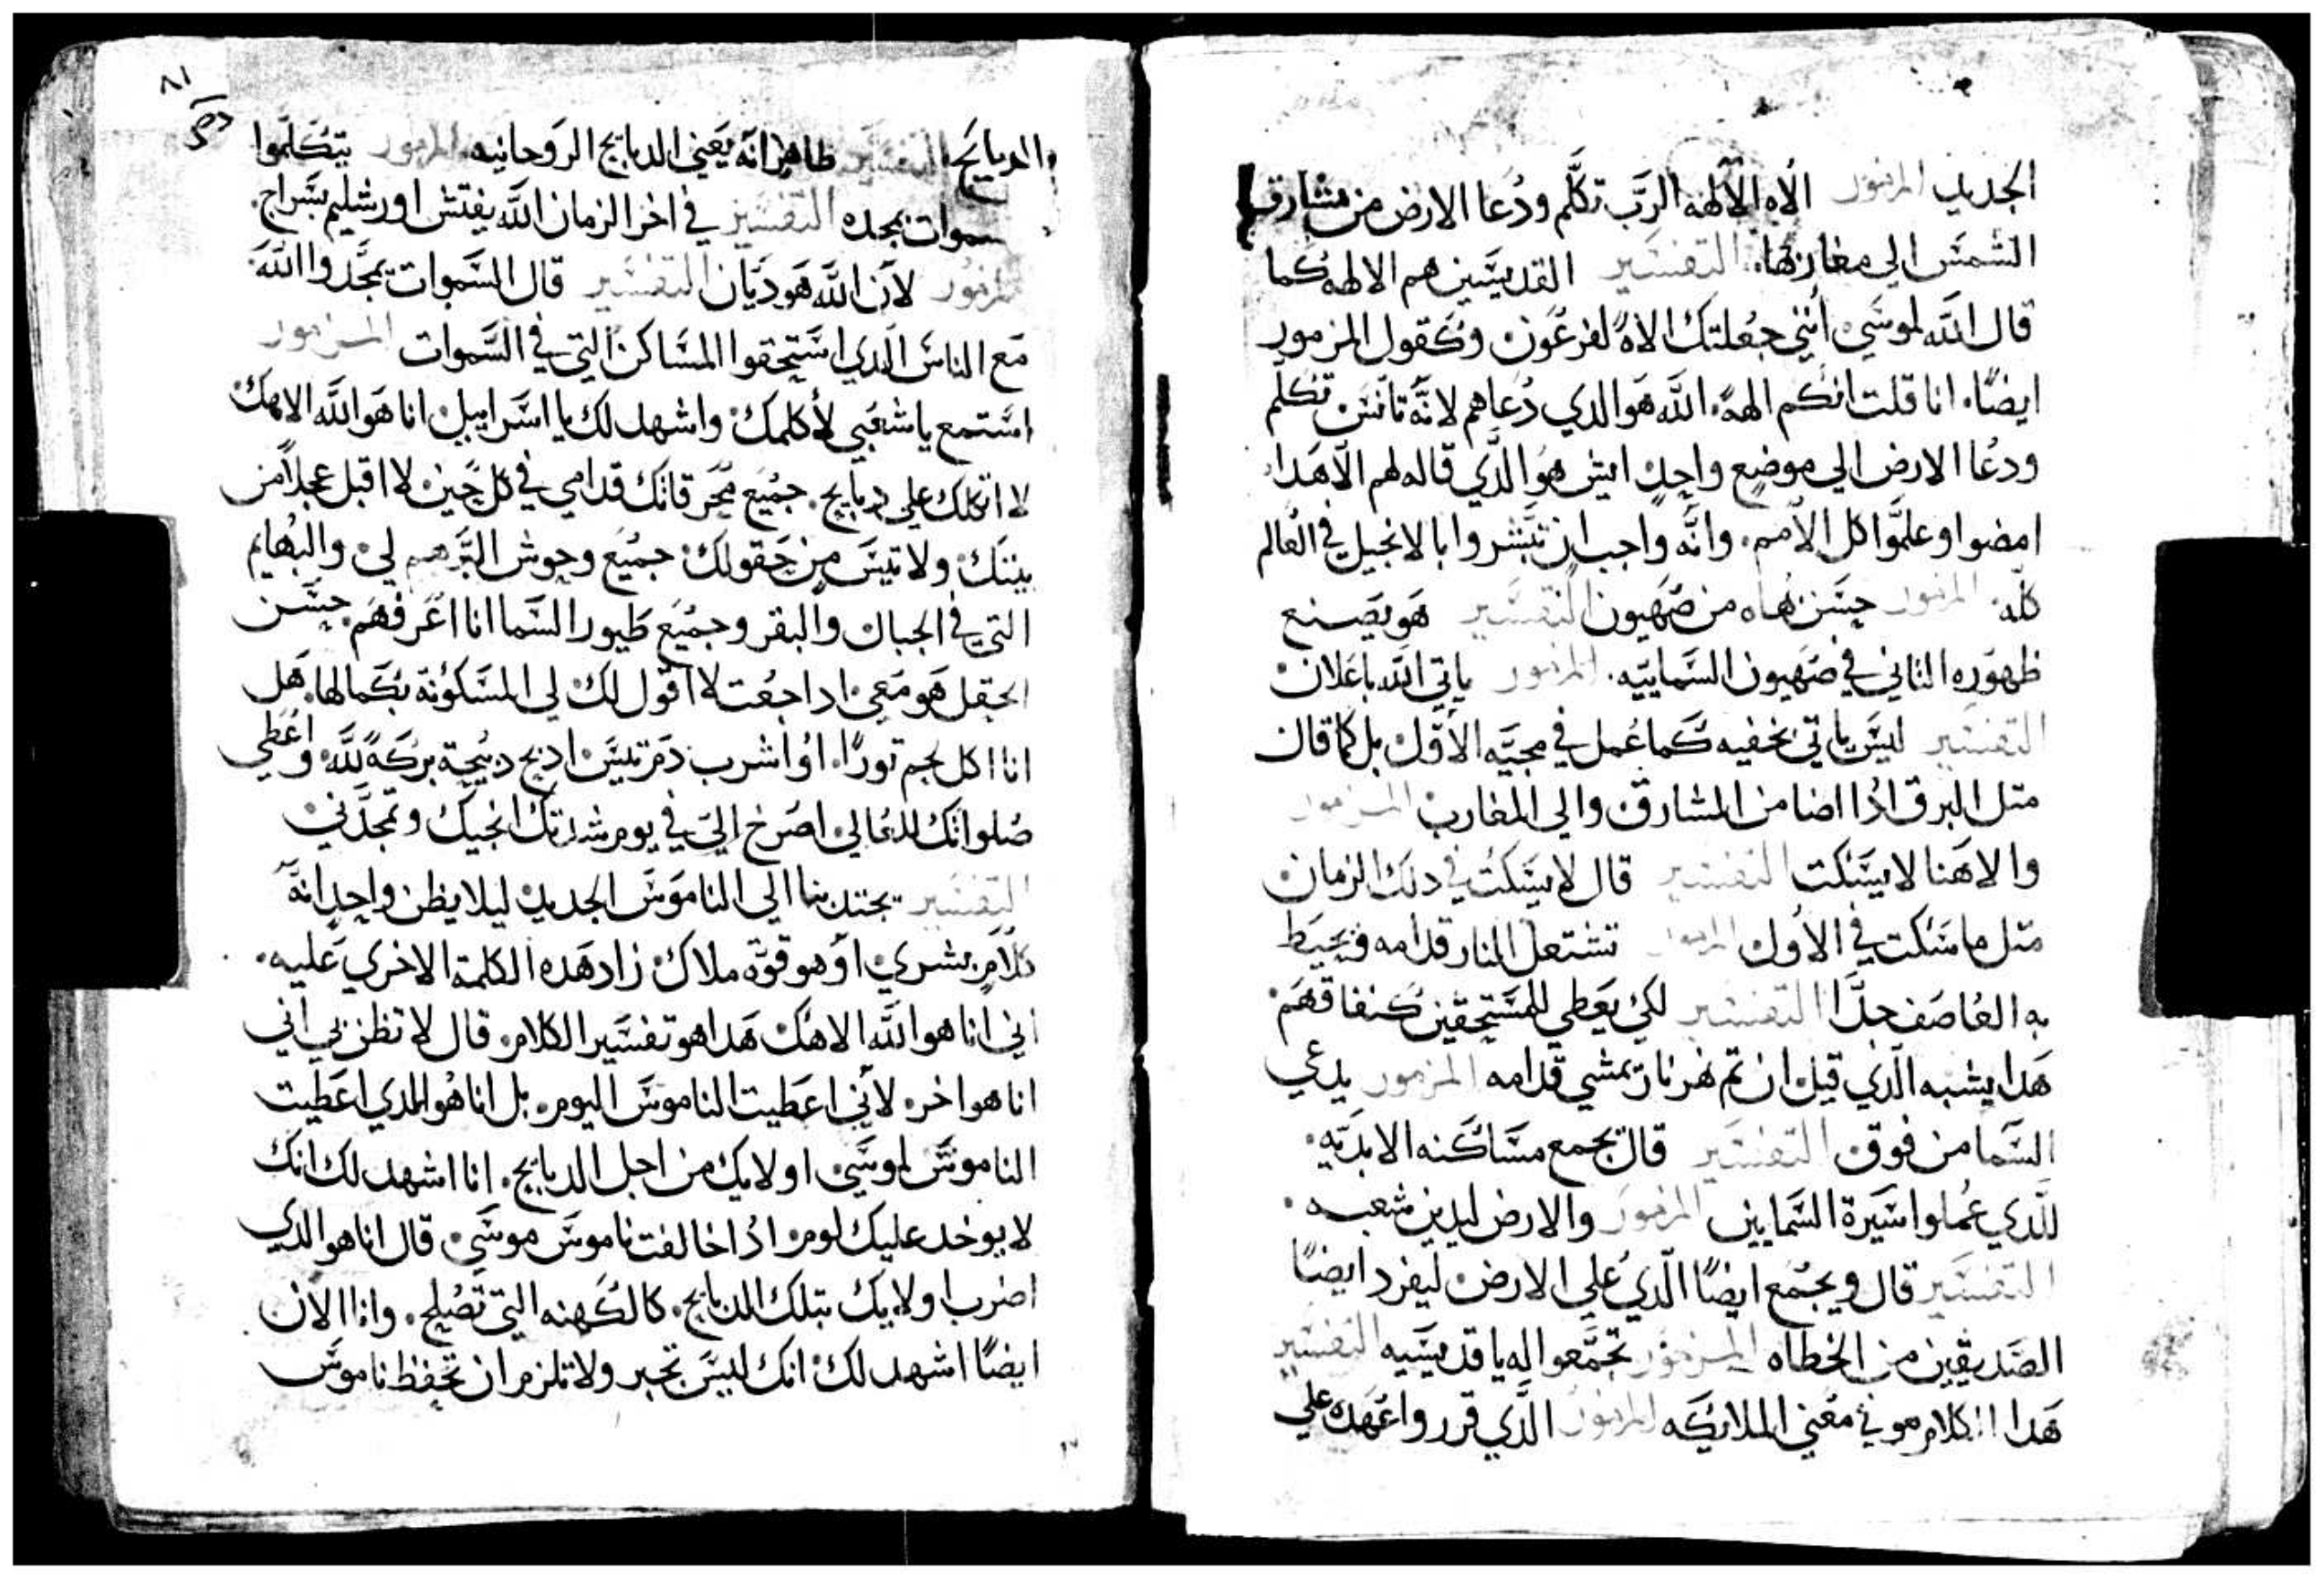 الجديد المزمور الاه الالهه الرَّب تكلَّم ودُعا الارض من مشارق
الشمسَ الي مغاربها. التفسَير القديسَين هم الالهه كما
قال اللَّه لموسَي انني جعلتك الاهً لفرعُون وكقول المزمور
ايضًا. انا قلت انكم الههً. اللَّه هوَ الدي دعاهم لانَّه تانسَ تكلم
ودعُا الارض الي موضع واحد ايش هوَ الَّدي قاله لهم الَّا هَدا
امضوا وعلمَّوا كل الامم. وانَّه واجب ان تبَّشروا بالانجيل في العُالم
كلَّه. المزمور حسَن بهاه من صَهيون التفسَير هوَ يصَنع
ظهورَه التاني في صَهيون السَّماييَّه. المزمور ياتي اللَّه باعَلان
التفسَير ليسَ ياتي بخفيه كَما عُمل في مجيَّه الاوَّل بل كما قال
متل البرق ادُا اضا من المشارق والي المغارب المزمور
والاهَنا لا يسَكت التفسَير قال لا يسَكت في دلك الزمان
متل ما سَكت في الاُول المزمور تشتعل النار قدامه فتحيَط
به العُاصَف جدًا التفسَير لكي يعَطي للمسَتحقين كنفاقهَم
هَدا يشبه الَّدي قيل ان تم نهر نار تمشي قدامه المزمور يدعي
السَّما من فوق التفسَير قال يجمع مسَاكنه الابديَّه
الَّدي عُملوا سَيرة السَّمايين المزمور والارض ليدين شعبه
التفسَير قال ويجمُع ايضًا الَّدي عُلي الارض ليفرد ايضًا
الصَديقين من الخطاه المزمور تجمَّعوا اليه يا قديسَيه التفسَير
هَدا الكلام هو في معَني الملايكَه المزمور الَّدي قرروا عَهده علي
٨١
الدبايح. التفسَير ظاهر انَّه يعَني الدبايح الروَحانيه المزمور يتكَلَّموا
السموات بمجده التفسَير في اخر الزمان اللَّه يفتش اورشليم بسَراج.
المزمور لانَ اللَّه هوَ ديَّان التفسَير قال السَّموات يمجَّدوا اللَّه
مَع الناسَ الَّدي اسَتحقوا المسَاكن التي في السَّموات المزمور
اسَتمع يا شعَبي لأكلمك واشهد لك يا اسَراييل انا هوَ اللَّه الاهك
لا اتكلك علي دبايح. جميُع مُحَرقاتك قدامي في كل حَين لا اقبل عجلًا من
بيتك ولا تيسَ من حَقولك جميُع وحوش البَّر هم لي والبُهايم
التي في الجبال والبقر وجميُع طيور السَّما انا اعَرفهَم. حسَن
الحقل هوَ مَعي ادا جعُت لا اقول لك لي المسَكوُنة بكَمالها. هَل
انا اكل لحم تورًا. اوُ اشرب دَم تيسَ ادبح دبيُحة بركَةً للَّه واعُطي
صُلواتك للعُالي اصَرخ اليَّ في يوم شدتك انجيك وتمجَّدني
التفسَير يجتدبنا الي الناموَسَ الجديد ليلا يظن واحد انَّه
كلام بشري اوَ هو قوَّة ملاك زاد هَده الكلمة الاخري عَليه.
اني انا هو اللَّه الاهك هَدا هو تفسَير الكلام. قال لا تظن بي اني
انا هو اخر. لأني اعَطيت الناموسَ اليوم. بل انا هُو الدي اعَطيت
الناموسَ لموسَي اولايك من اجل الدبايح. انا اشهد لك انك
لا يوخد عليك لوم ادُا خالفت ناموسَ موسَي قال انا هو الدي
اضرب اولايك بتلك الدبايح. كالكَهنه التي تصُلح. وادا الان
ايضًا اشهد لك انك ليسَ تجبر ولا تلزم ان تحفظ ناموسَ